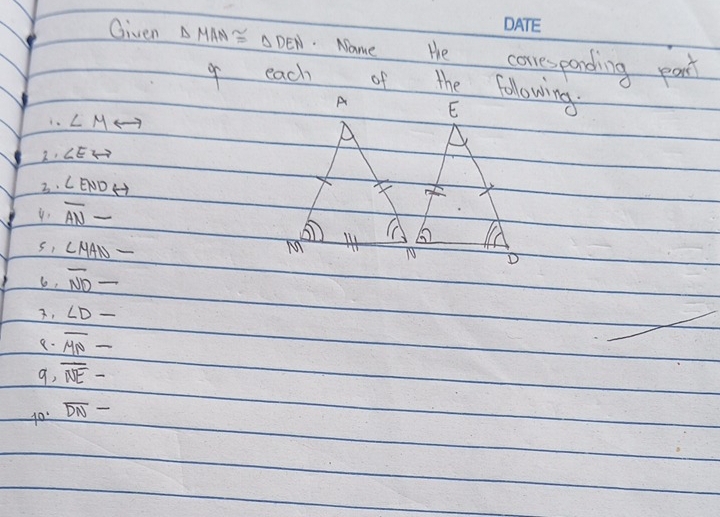 DATE
Given △ MAN ≅ △ DEN. Name the corresponding part
of each of the following.
A E
1. ∠ M ↔
2. ∠E ↔
3. ∠ END ↔
4. A̅N̅ —
5. ∠MAN —
M N D
6. N̅D̅ —
7. ∠D —
8. M̅N̅ —
9. N̅E̅ —
10. D̅N̅ —